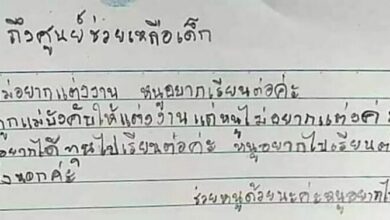 ถึงศูนย์ช่วยเหลือเด็ก
ไม่อยากแต่งงาน หนูอยากเรียนต่อค่ะ
ถูกแม่บังคับให้แต่งงาน แต่หนูไม่อยากแต่งค่ะ
อยากได้ทุนไปเรียนต่อค่ะ หนูอยากไปเรียนต
นอกค่ะ
ช่วยหนูด้วยนะค่ะหนูอยากไ